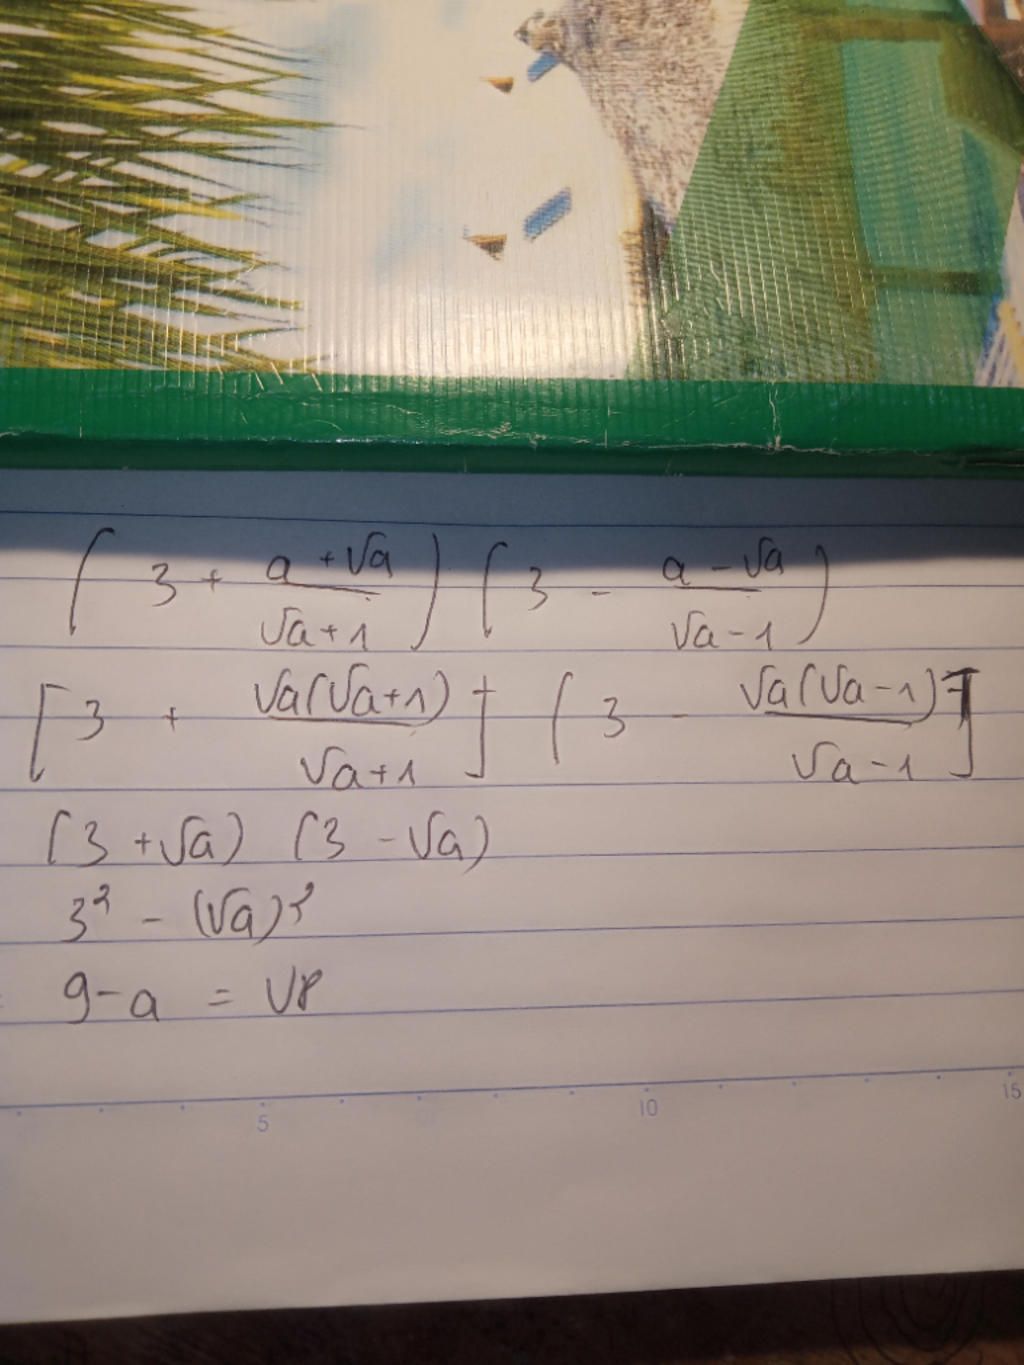 (3 + (a + √a)/(√a + 1)) (3 - (a - √a)/(√a - 1))
[3 + √a(√a + 1)/(√a + 1)] [3 - √a(√a - 1)/(√a - 1)]
(3 + √a) (3 - √a)
3² - (√a)²
9 - a = VP
5 10 15